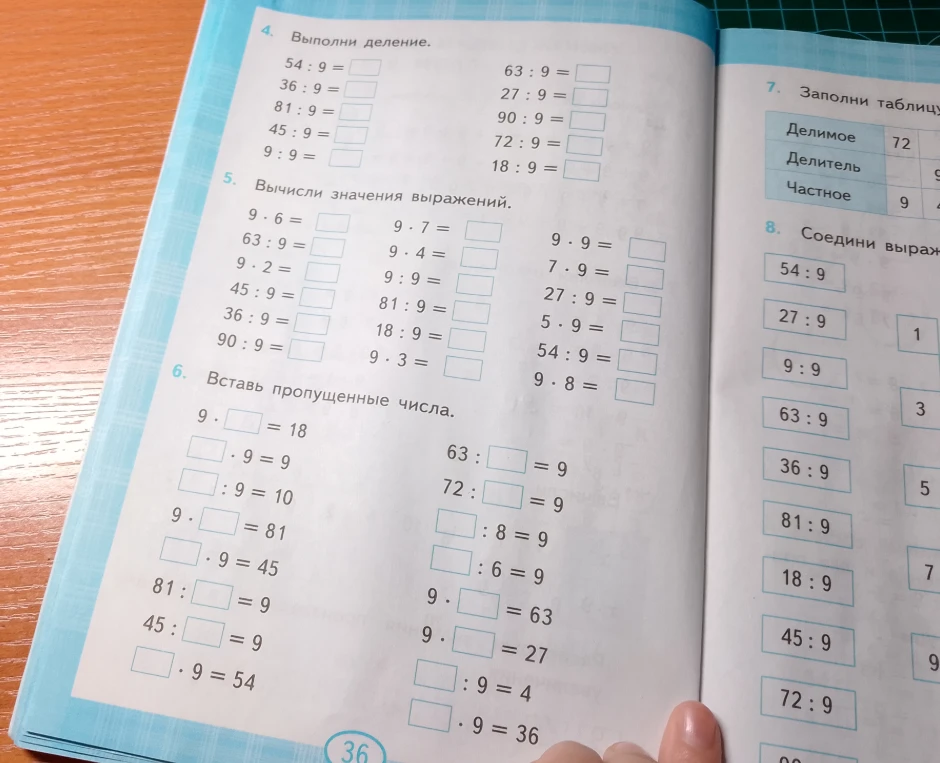 4. Выполни деление.
54 : 9 =
36 : 9 =
81 : 9 =
45 : 9 =
9 : 9 =
63 : 9 =
27 : 9 =
90 : 9 =
72 : 9 =
18 : 9 =
5. Вычисли значения выражений.
9 · 6 =
63 : 9 =
9 · 2 =
45 : 9 =
36 : 9 =
90 : 9 =
9 · 7 =
9 · 4 =
9 : 9 =
81 : 9 =
18 : 9 =
9 · 3 =
9 · 9 =
7 · 9 =
27 : 9 =
5 · 9 =
54 : 9 =
9 · 8 =
6. Вставь пропущенные числа.
9 · = 18
· 9 = 9
: 9 = 10
9 · = 81
· 9 = 45
81 : = 9
45 : = 9
· 9 = 54
63 : = 9
72 : = 9
: 8 = 9
: 6 = 9
9 · = 63
9 · = 27
: 9 = 4
· 9 = 36
36
7. Заполни таблицу
Делимое 72
Делитель 9
Частное 9
8. Соедини выраж
54 : 9
27 : 9
9 : 9
63 : 9
36 : 9
81 : 9
18 : 9
45 : 9
72 : 9
1
3
5
7
9